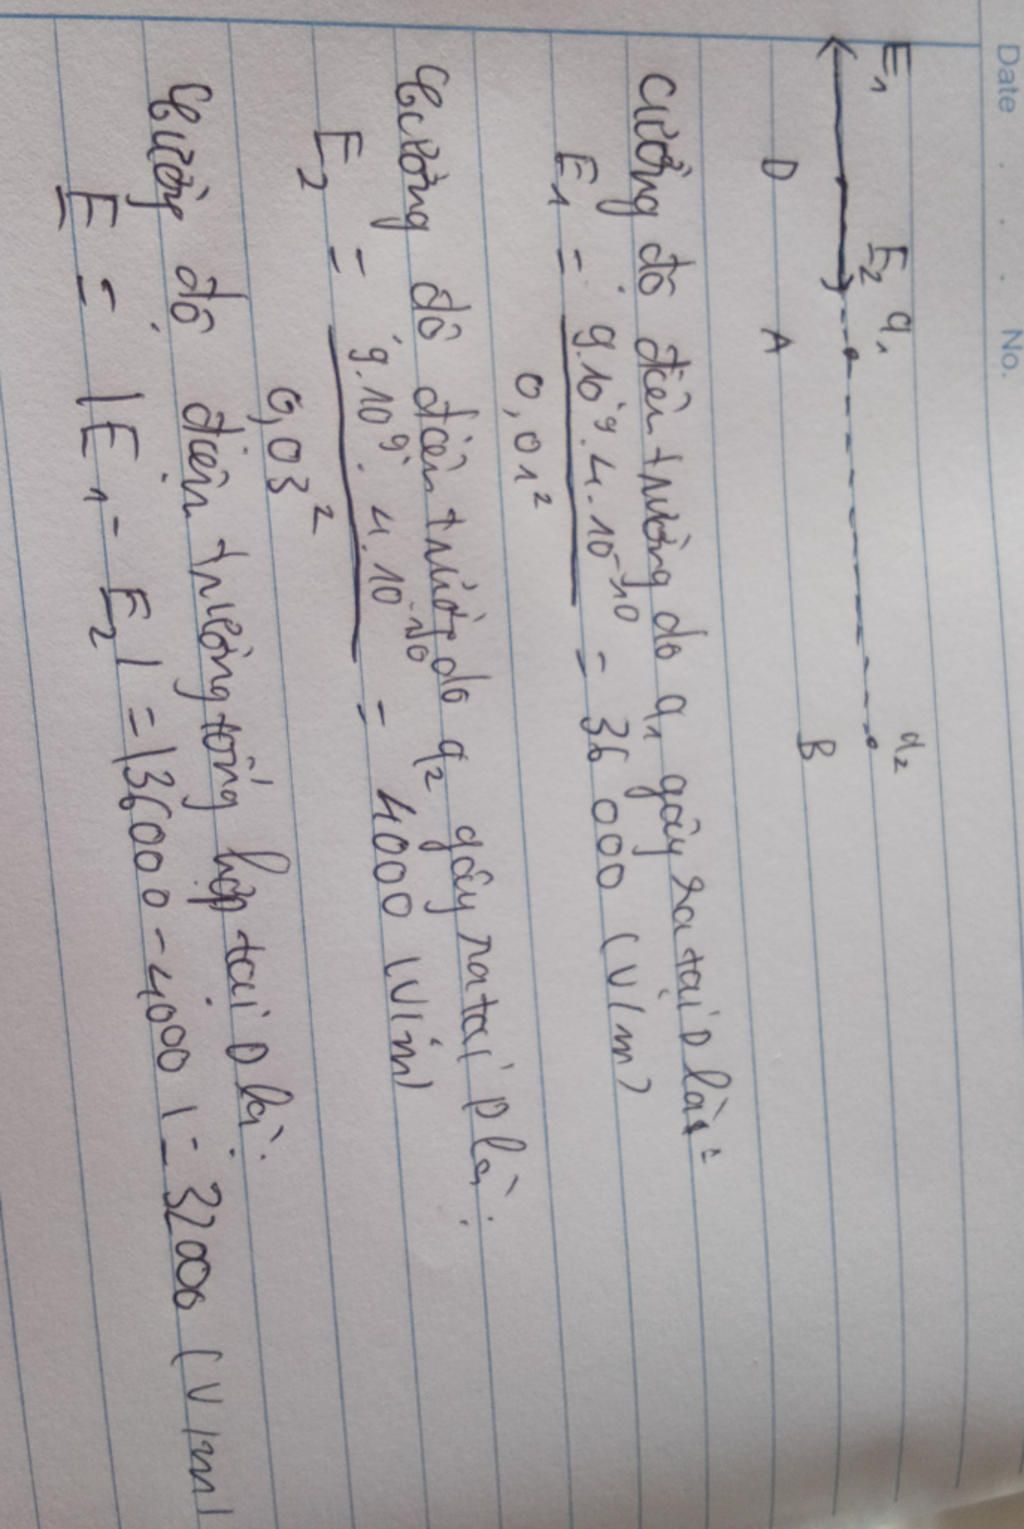 Date . . . No.
E₁ E₂ q₁ q₂
D A B
Cường độ điện trường do q₁ gây ra tại D là:
E₁ = 9.10⁹.4.10⁻¹⁰ / 0,01² = 36 000 (V/m)
Cường độ điện trường do q₂ gây ra tại D là:
E₂ = 9.10⁹.4.10⁻¹⁰ / 0,03² = 4000 (V/m)
Cường độ điện trường tổng hợp tại D là:
E = |E₁ - E₂| = |36000 - 4000| = 32000 (V/m)